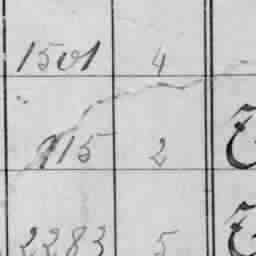 1501 4
115 2
2283 5